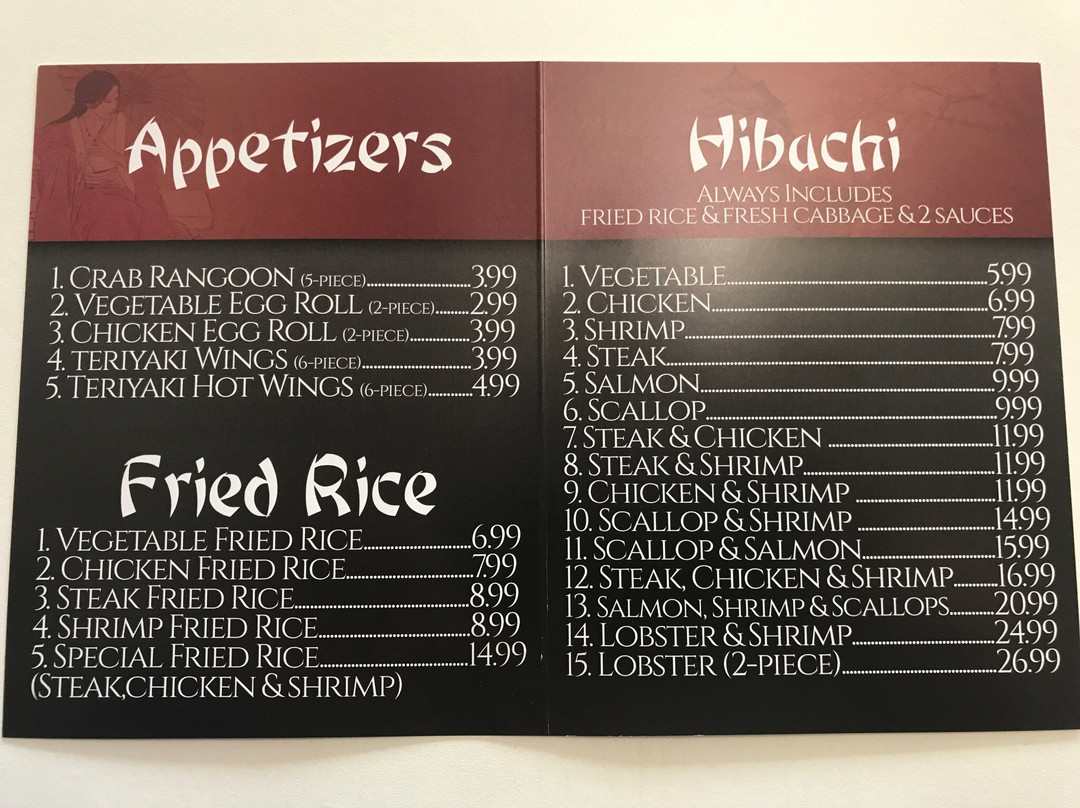 Appetizers
1. Crab Rangoon (5-piece)..........3.99
2. Vegetable Egg Roll (2-piece)..........2.99
3. Chicken Egg Roll (2-piece)..........3.99
4. teriyaki Wings (6-piece)..........3.99
5. Teriyaki Hot Wings (6-piece)..........4.99
Fried Rice
1. Vegetable Fried Rice..........6.99
2. Chicken Fried Rice..........7.99
3. Steak Fried Rice..........8.99
4. Shrimp Fried Rice..........8.99
5. Special Fried Rice..........14.99
(Steak,chicken & shrimp)
Hibachi
Always Includes
fried rice & fresh cabbage & 2 sauces
1. Vegetable..........5.99
2. Chicken..........6.99
3. Shrimp..........7.99
4. Steak..........7.99
5. Salmon..........9.99
6. Scallop..........9.99
7. Steak & Chicken ..........11.99
8. Steak & Shrimp..........11.99
9. Chicken & Shrimp ..........11.99
10. Scallop & Shrimp ..........14.99
11. Scallop & Salmon..........15.99
12. Steak, Chicken & Shrimp..........16.99
13. Salmon, Shrimp & Scallops..........20.99
14. Lobster & Shrimp..........24.99
15. Lobster (2-piece)..........26.99